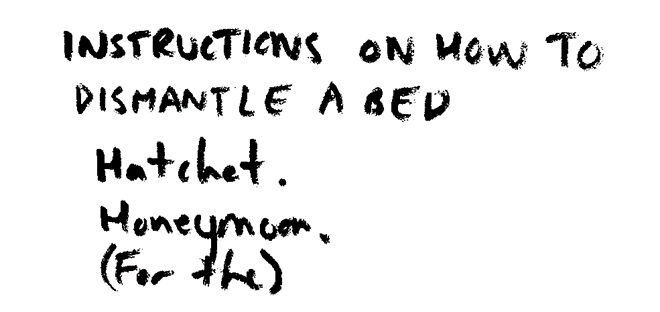 INSTRUCTIONS ON HOW TO
DISMANTLE A BED
Hatchet.
Honeymoon.
(For the)